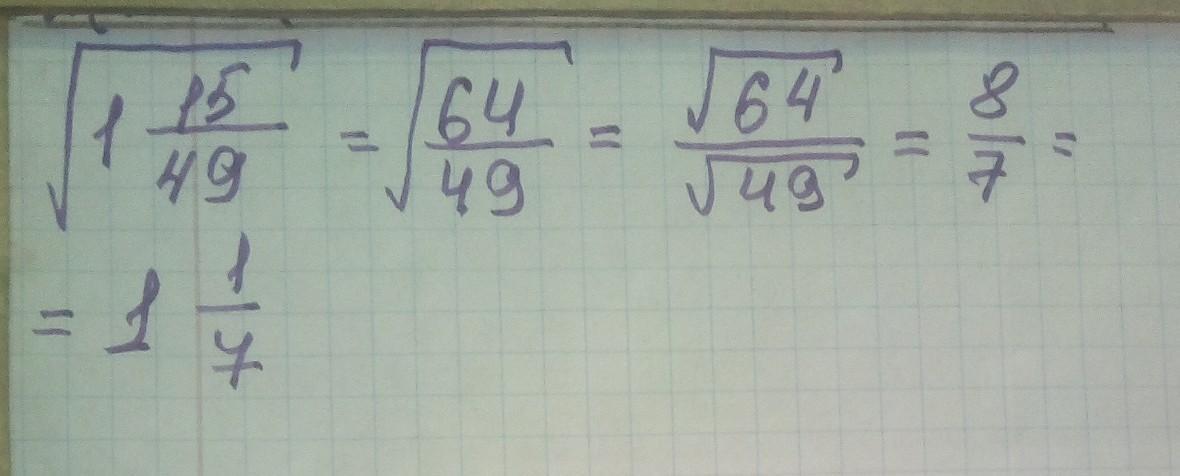 √(1 15/49) = √(64/49) = √64/√49 = 8/7 =
= 1 1/7